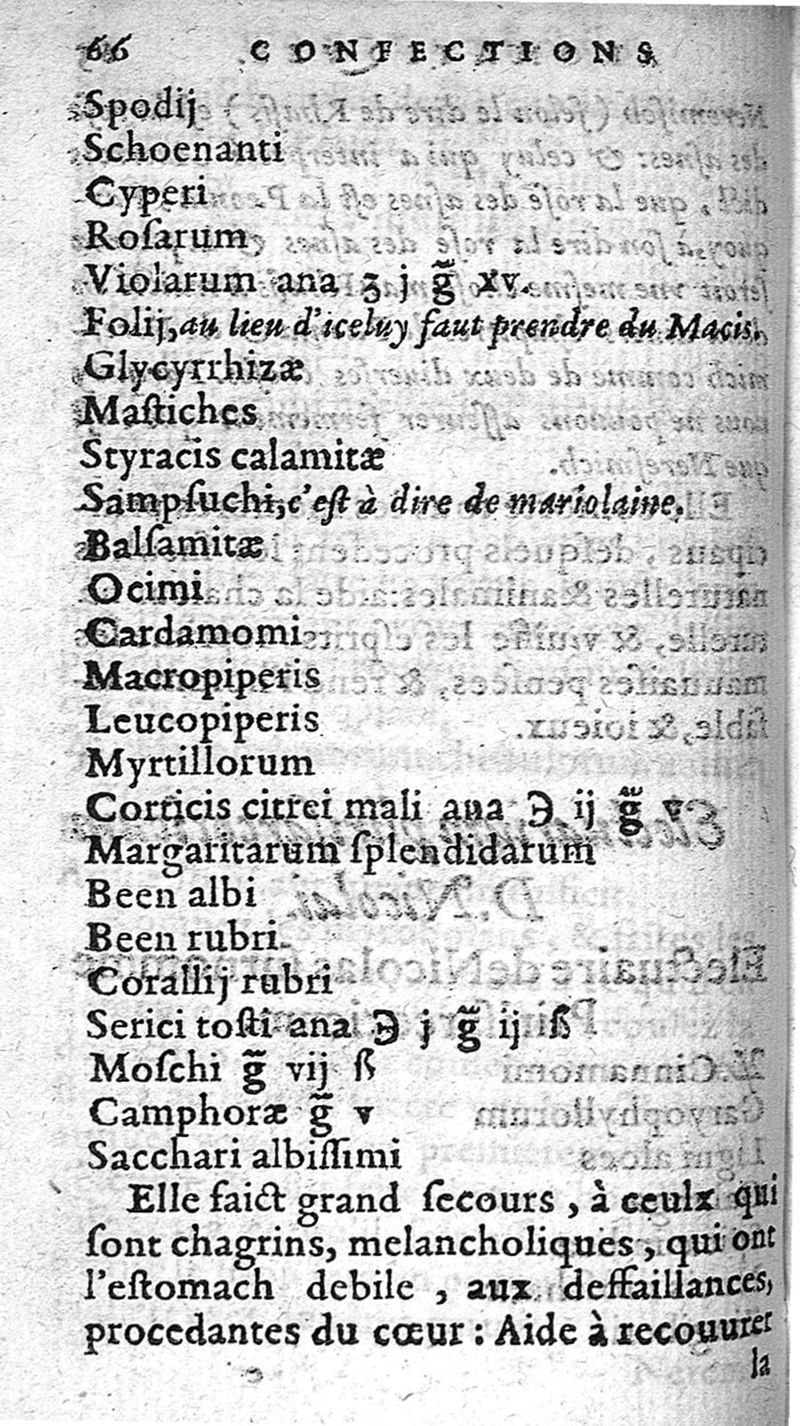 66 CONFECTIONS
Spodij
Schoenanti
Cyperi
Roſarum
Violarum ana ʒ j g̃ xv.
Folij, au lieu d'iceluy faut prendre du Macis.
Glycyrrhizæ
Maſtiches
Styracis calamitæ
Sampſuchi, c'eſt à dire de mariolaine.
Balſamitæ
Ocimi
Cardamomi
Macropiperis
Leucopiperis
Myrtillorum
Corticis citrei mali ana ℈ ij g̃ v
Margaritarum ſplendidarum
Been albi
Been rubri
Corallij rubri
Serici toſti ana ℈ j g̃ ij ß
Moſchi g̃ vij ß
Camphoræ g̃ v
Sacchari albiſſimi
Elle faict grand ſecours, à ceulx qui
ſont chagrins, melancholiques, qui ont
l'eſtomach debile, aux deffaillances,
procedantes du cœur : Aide à recouurer
la